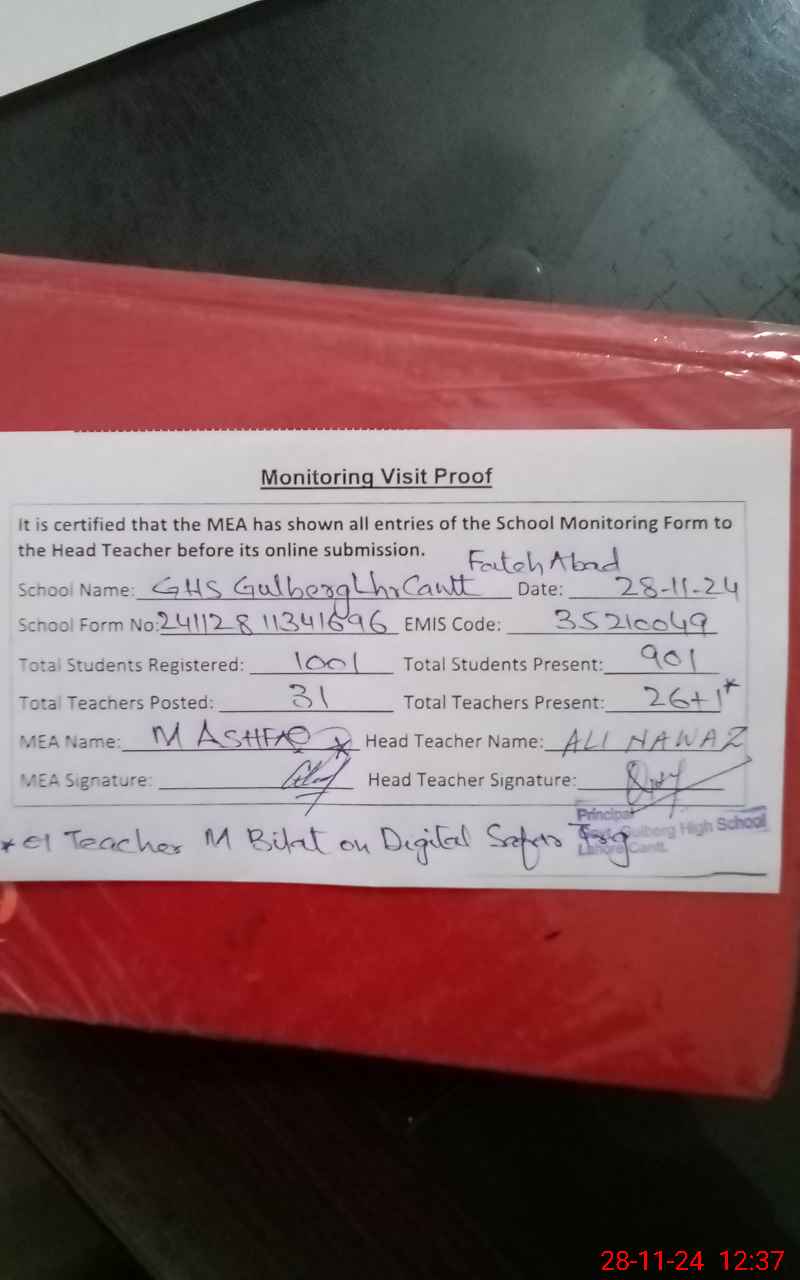 Monitoring Visit Proof
It is certified that the MEA has shown all entries of the School Monitoring Form to
the Head Teacher before its online submission.
Fateh Abad
School Name: GHS Gulberg Lhr Cantt Date: 28-11-24
School Form No: 24112811341696 EMIS Code: 35210049
Total Students Registered: 1001 Total Students Present: 901
Total Teachers Posted: 31 Total Teachers Present: 26+1*
MEA Name: M ASHFAQ Head Teacher Name: ALI NAWAZ
MEA Signature: Head Teacher Signature:
Principal
Govt. Gulberg High School
Lahore Cantt.
* 01 Teacher M Bilal on Digital Trg
28-11-24 12:37